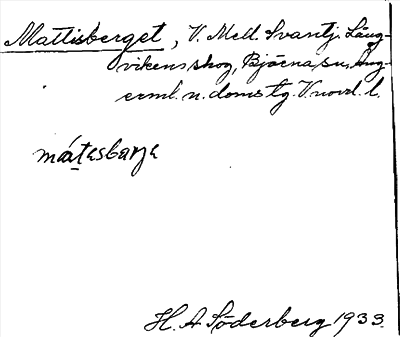 Mattisberget, V. Mell. Svartj. Lång-
vikens skog, Björna sn, Ång-
erml. n. doms tg. V.norrl. l.
mátesbarje
H. A Söderberg 1933.